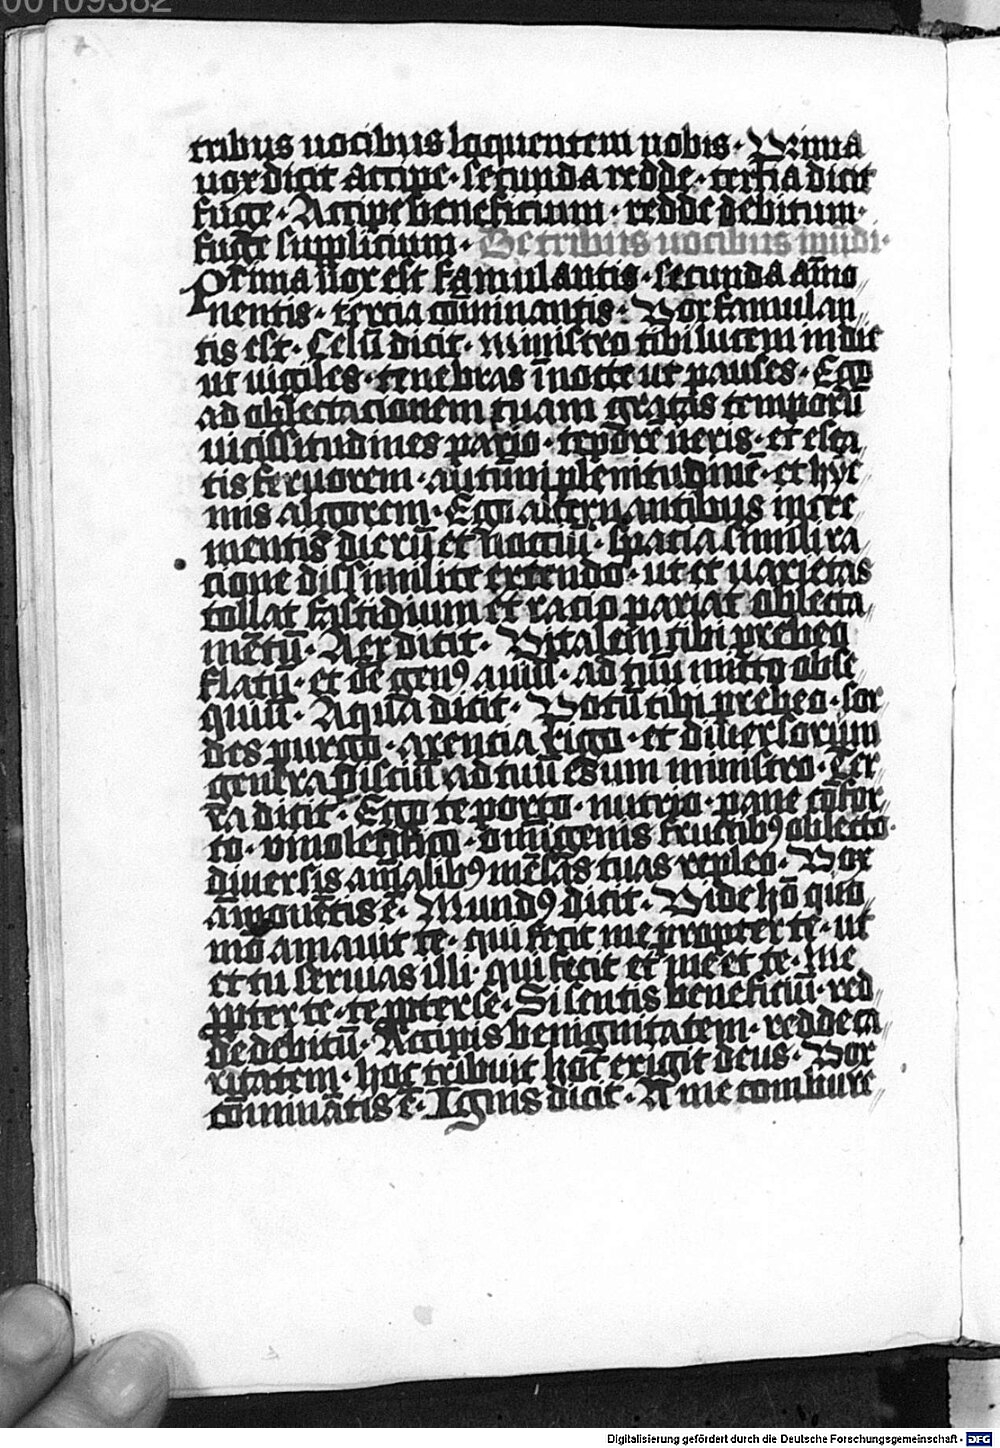 00109382
tribus uocibus loquentem uobis · Prima
uox dicit accipe · secunda redde · tertia dicit
fuge · Accipe beneficium · redde debitum ·
fuge supplicium · De tribus uocibus mūdi ·
Prima uox est famulantis · secunda am̄o
nentis · tercia cōminantis · Vox famulan
tis est · Celū dicit · ministro tibi lucem in die
ut uigiles · tenebras ī nocte ut pauses · Ego
ad oblectacionem tuam gratas temporū
uicissitudines pario · tepore ueris · et esta
tis feruorem · autūni plenitudinē · et hye
mis algorem · Ego alternantibus incre
mentis dierū et noctiū · spacia simili ra
cione dissimilite extendo · ut et uarietas
tollat fastidium et racio pariat oblecta
mētū · Aer dicit · Vitalem tibi prebeo
flatū · et de genꝰ auiū · ad tuū mitto obse
quiū · Aqua dicit · Potū tibi prebeo · sor
des purgo · arentia rigo · et diuersorum
genera pisciū ad tuū esum ministro · Ter
ra dicit · Ego te porto · nutrio · pane cōfor
to · uino letifico · omīgenis fructibꝰ oblecto ·
diuersis aīalibꝰ mēsas tuas repleo · Vox
amouētis ē · Mundꝰ dicit · Vide hō quo
mō amauit te · qui fecit me propter te · ut
et tu seruias illi · qui fecit et me et te · me
ꝓpter te · te ꝓpter se · Si sentis beneficiū · red
de debitū · Accipis benignitatem · redde ca
ritatem · hoc tribuit hoc exigit deus · Vox
cōminātis ē · Ignis dicit · A me combure
Digitalisierung gefördert durch die Deutsche Forschungsgemeinschaft - DFG